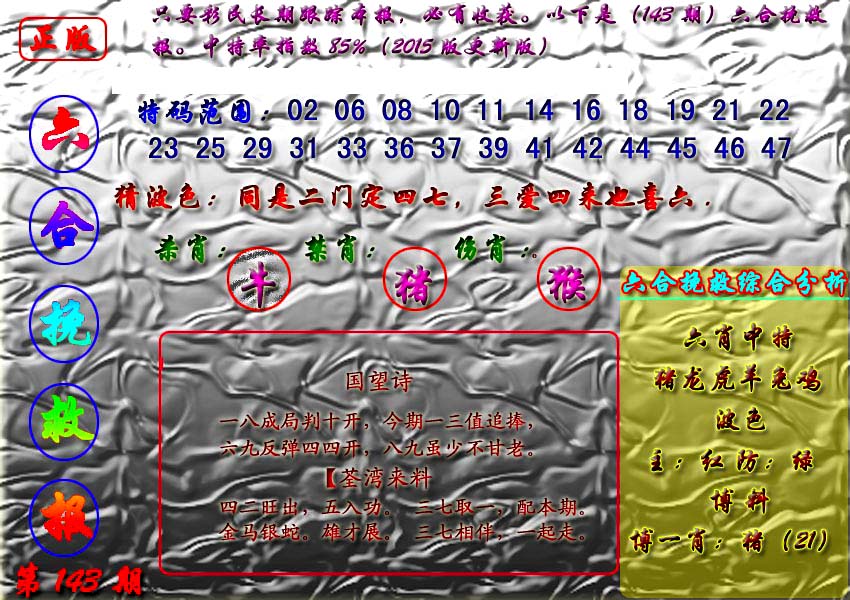 正版
只要彩民长期跟踪本报，必有收获。以下是（143期）六合挽救
报。中特率指数85%（2015版更新版）
六合挽救报
第143期
特码范围：02 06 08 10 11 14 16 18 19 21 22
23 25 29 31 33 36 37 39 41 42 44 45 46 47
猜波色：同是二门定四七，三爱四来也喜六．
杀肖：牛 禁肖：猪 伤肖：。猴
国望诗
一八成局判十开，今期一三值追捧，
六九反弹四四开，八九虽少不甘老。
【荃湾来料
四二旺出，五入功。 三七取一，配本期。
金马银蛇。雄才展。 三七相伴，一起走。
六合挽救综合分析
六肖中特
猪龙虎羊兔鸡
波色
主：红防：绿
博料
博一肖：猪（21）